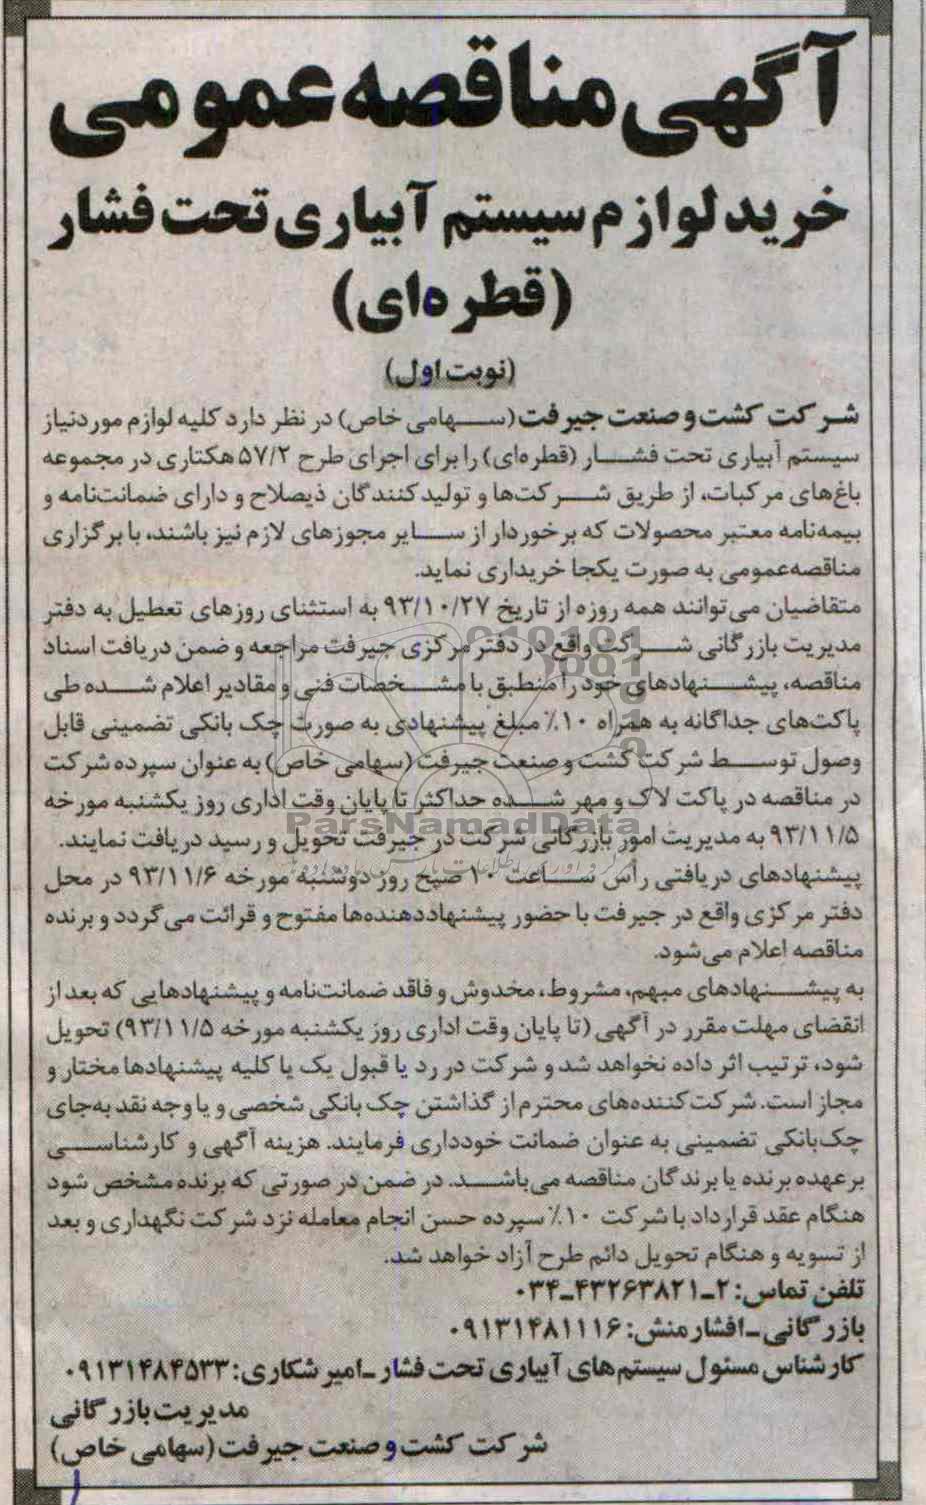 آگهی مناقصه عمومی
خرید لوازم سیستم آبیاری تحت فشار
(قطره‌ای)
(نوبت اول)
شرکت کشت و صنعت جیرفت (سهامی خاص) در نظر دارد کلیه لوازم موردنیاز
سیستم آبیاری تحت فشار (قطره‌ای) را برای اجرای طرح ۵۷/۲ هکتاری در مجموعه
باغ‌های مرکبات، از طریق شرکت‌ها و تولیدکنندگان ذیصلاح و دارای ضمانت‌نامه و
بیمه‌نامه معتبر محصولات که برخوردار از سایر مجوزهای لازم نیز باشند، با برگزاری
مناقصه‌عمومی به صورت یکجا خریداری نماید.
متقاضیان می‌توانند همه روزه از تاریخ ۹۳/۱۰/۲۷ به استثنای روزهای تعطیل به دفتر
مدیریت بازرگانی شرکت واقع در دفتر مرکزی جیرفت مراجعه و ضمن دریافت اسناد
مناقصه، پیشنهادهای خود را منطبق با مشخصات فنی و مقادیر اعلام شده طی
پاکت‌های جداگانه به همراه ۱۰٪ مبلغ پیشنهادی به صورت چک بانکی تضمینی قابل
وصول توسط شرکت کشت و صنعت جیرفت (سهامی خاص) به عنوان سپرده شرکت
در مناقصه در پاکت لاک و مهر شده حداکثر تا پایان وقت اداری روز یکشنبه مورخه
۹۳/۱۱/۵ به مدیریت امور بازرگانی شرکت در جیرفت تحویل و رسید دریافت نمایند.
ParsNamadData
پیشنهادهای دریافتی رأس ساعت ۱۰ صبح روز دوشنبه مورخه ۹۳/۱۱/۶ در محل
دفتر مرکزی واقع در جیرفت با حضور پیشنهاددهنده‌ها مفتوح و قرائت می‌گردد و برنده
مناقصه اعلام می‌شود.
به پیشنهادهای مبهم، مشروط، مخدوش و فاقد ضمانت‌نامه و پیشنهادهایی که بعد از
انقضای مهلت مقرر در آگهی (تا پایان وقت اداری روز یکشنبه مورخه ۹۳/۱۱/۵) تحویل
شود، ترتیب اثر داده نخواهد شد و شرکت در رد یا قبول یک یا کلیه پیشنهادها مختار و
مجاز است. شرکت‌کننده‌های محترم از گذاشتن چک بانکی شخصی و یا وجه نقد به‌جای
چک‌بانکی تضمینی به عنوان ضمانت خودداری فرمایند. هزینه آگهی و کارشناسی
برعهده برنده یا برندگان مناقصه می‌باشد. در ضمن در صورتی که برنده مشخص شود
هنگام عقد قرارداد با شرکت ۱۰٪ سپرده حسن انجام معامله نزد شرکت نگهداری و بعد
از تسویه و هنگام تحویل دائم طرح آزاد خواهد شد.
تلفن تماس: ۲-۴۳۲۶۳۸۲۱-۰۳۴
بازرگانی-افشارمنش: ۰۹۱۳۱۴۸۱۱۱۶
کارشناس مسئول سیستم‌های آبیاری تحت فشار-امیر شکاری: ۰۹۱۳۱۴۸۴۵۳۳
مدیریت بازرگانی
شرکت کشت و صنعت جیرفت (سهامی خاص)